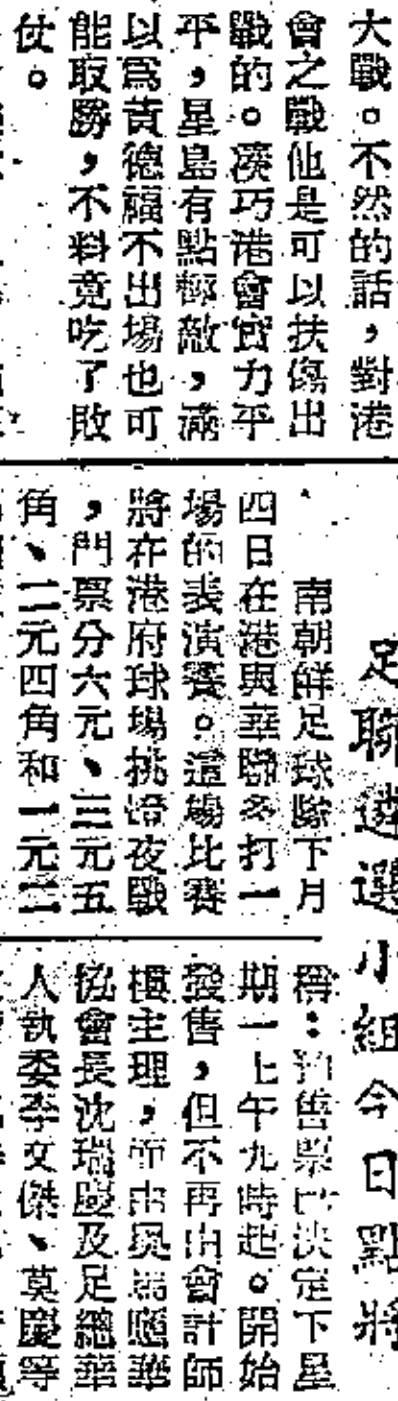 大戰。不然的話，對港
會之戰他是可以扶傷出
戰的。湊巧港會實力平
平，星島有點輕敵，滿
以爲黃德福不出場也可
能取勝，不料竟吃了敗
仗。
足聯遴選小組今日點將
南朝鮮足球隊下月
四日在港與華聯多打一
場的表演賽。這場比賽
將在港府球場挑燈夜戰
，門票分六元、三元五
角、二元四角和一元二
稱：預售票已決定下星
期一上午九時起。開始
發售，但不再由會計師
樓主理，而由
協會長沈瑞慶及足總華
人執委李文傑、莫慶等